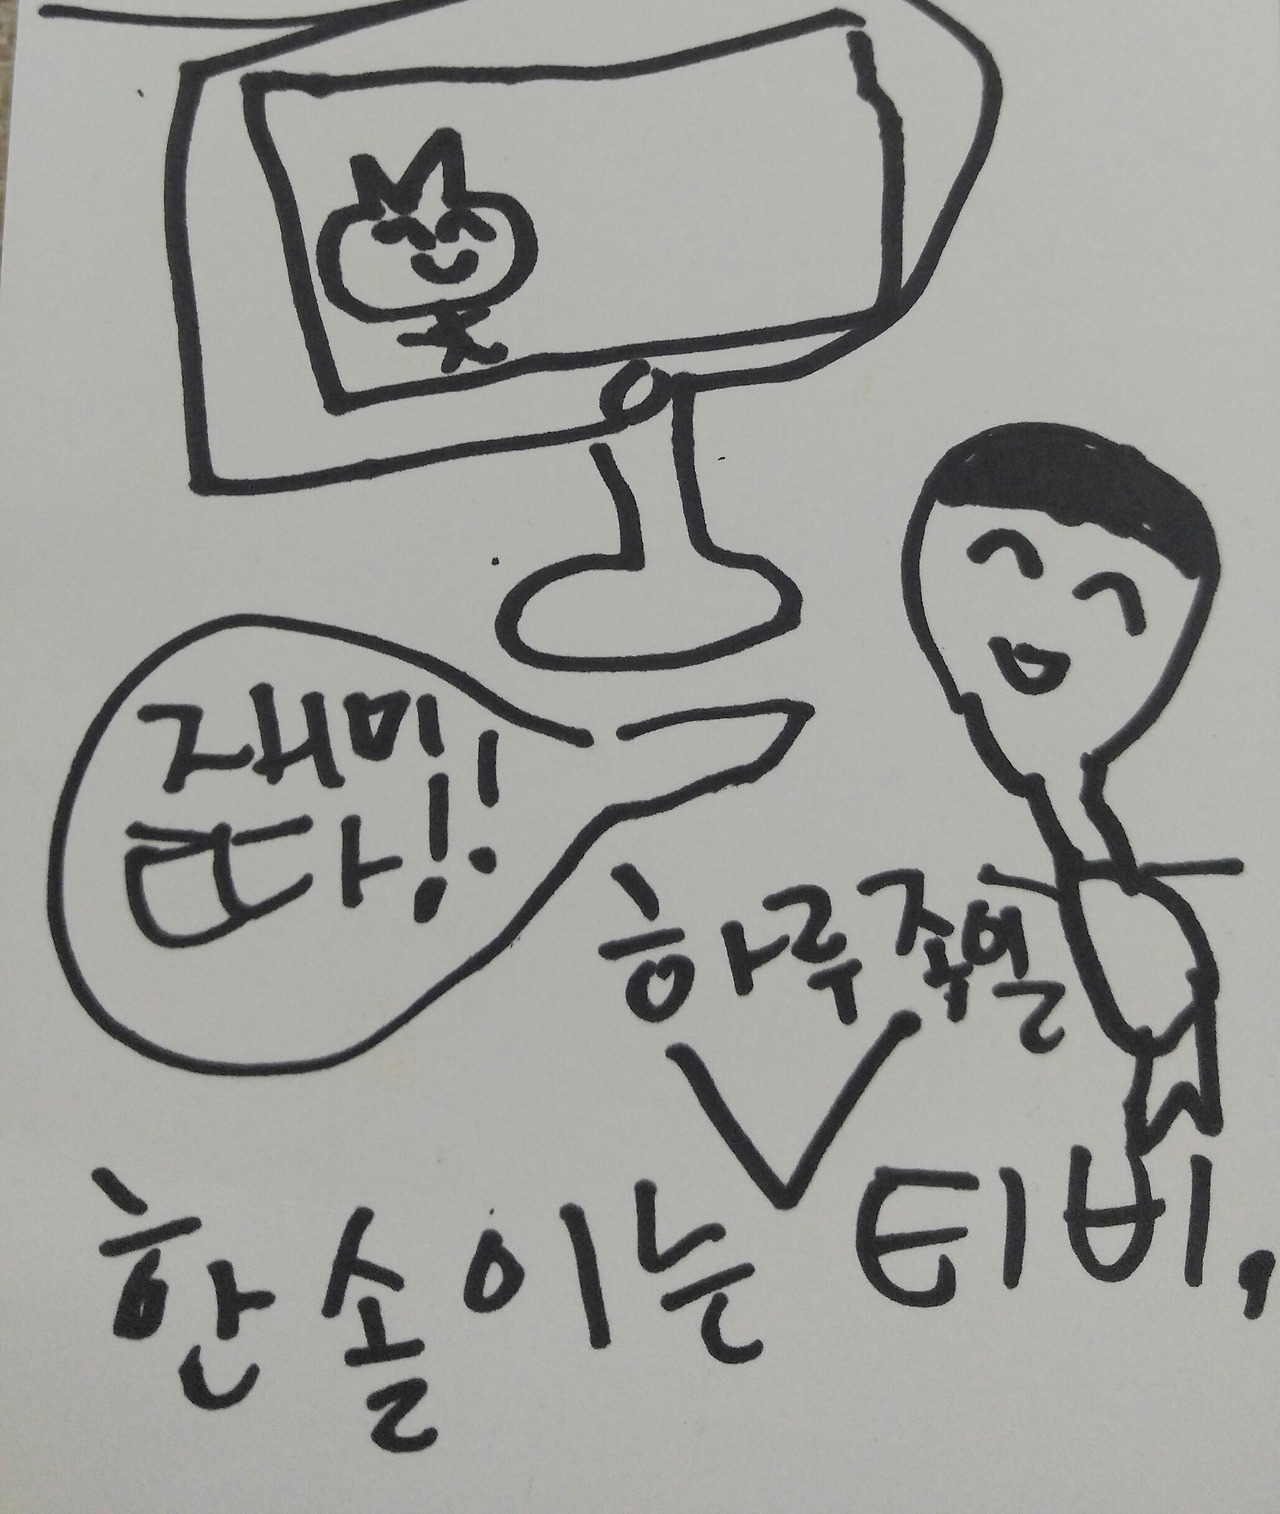 재미
따!!
하루 종일
한솔이는 티비,